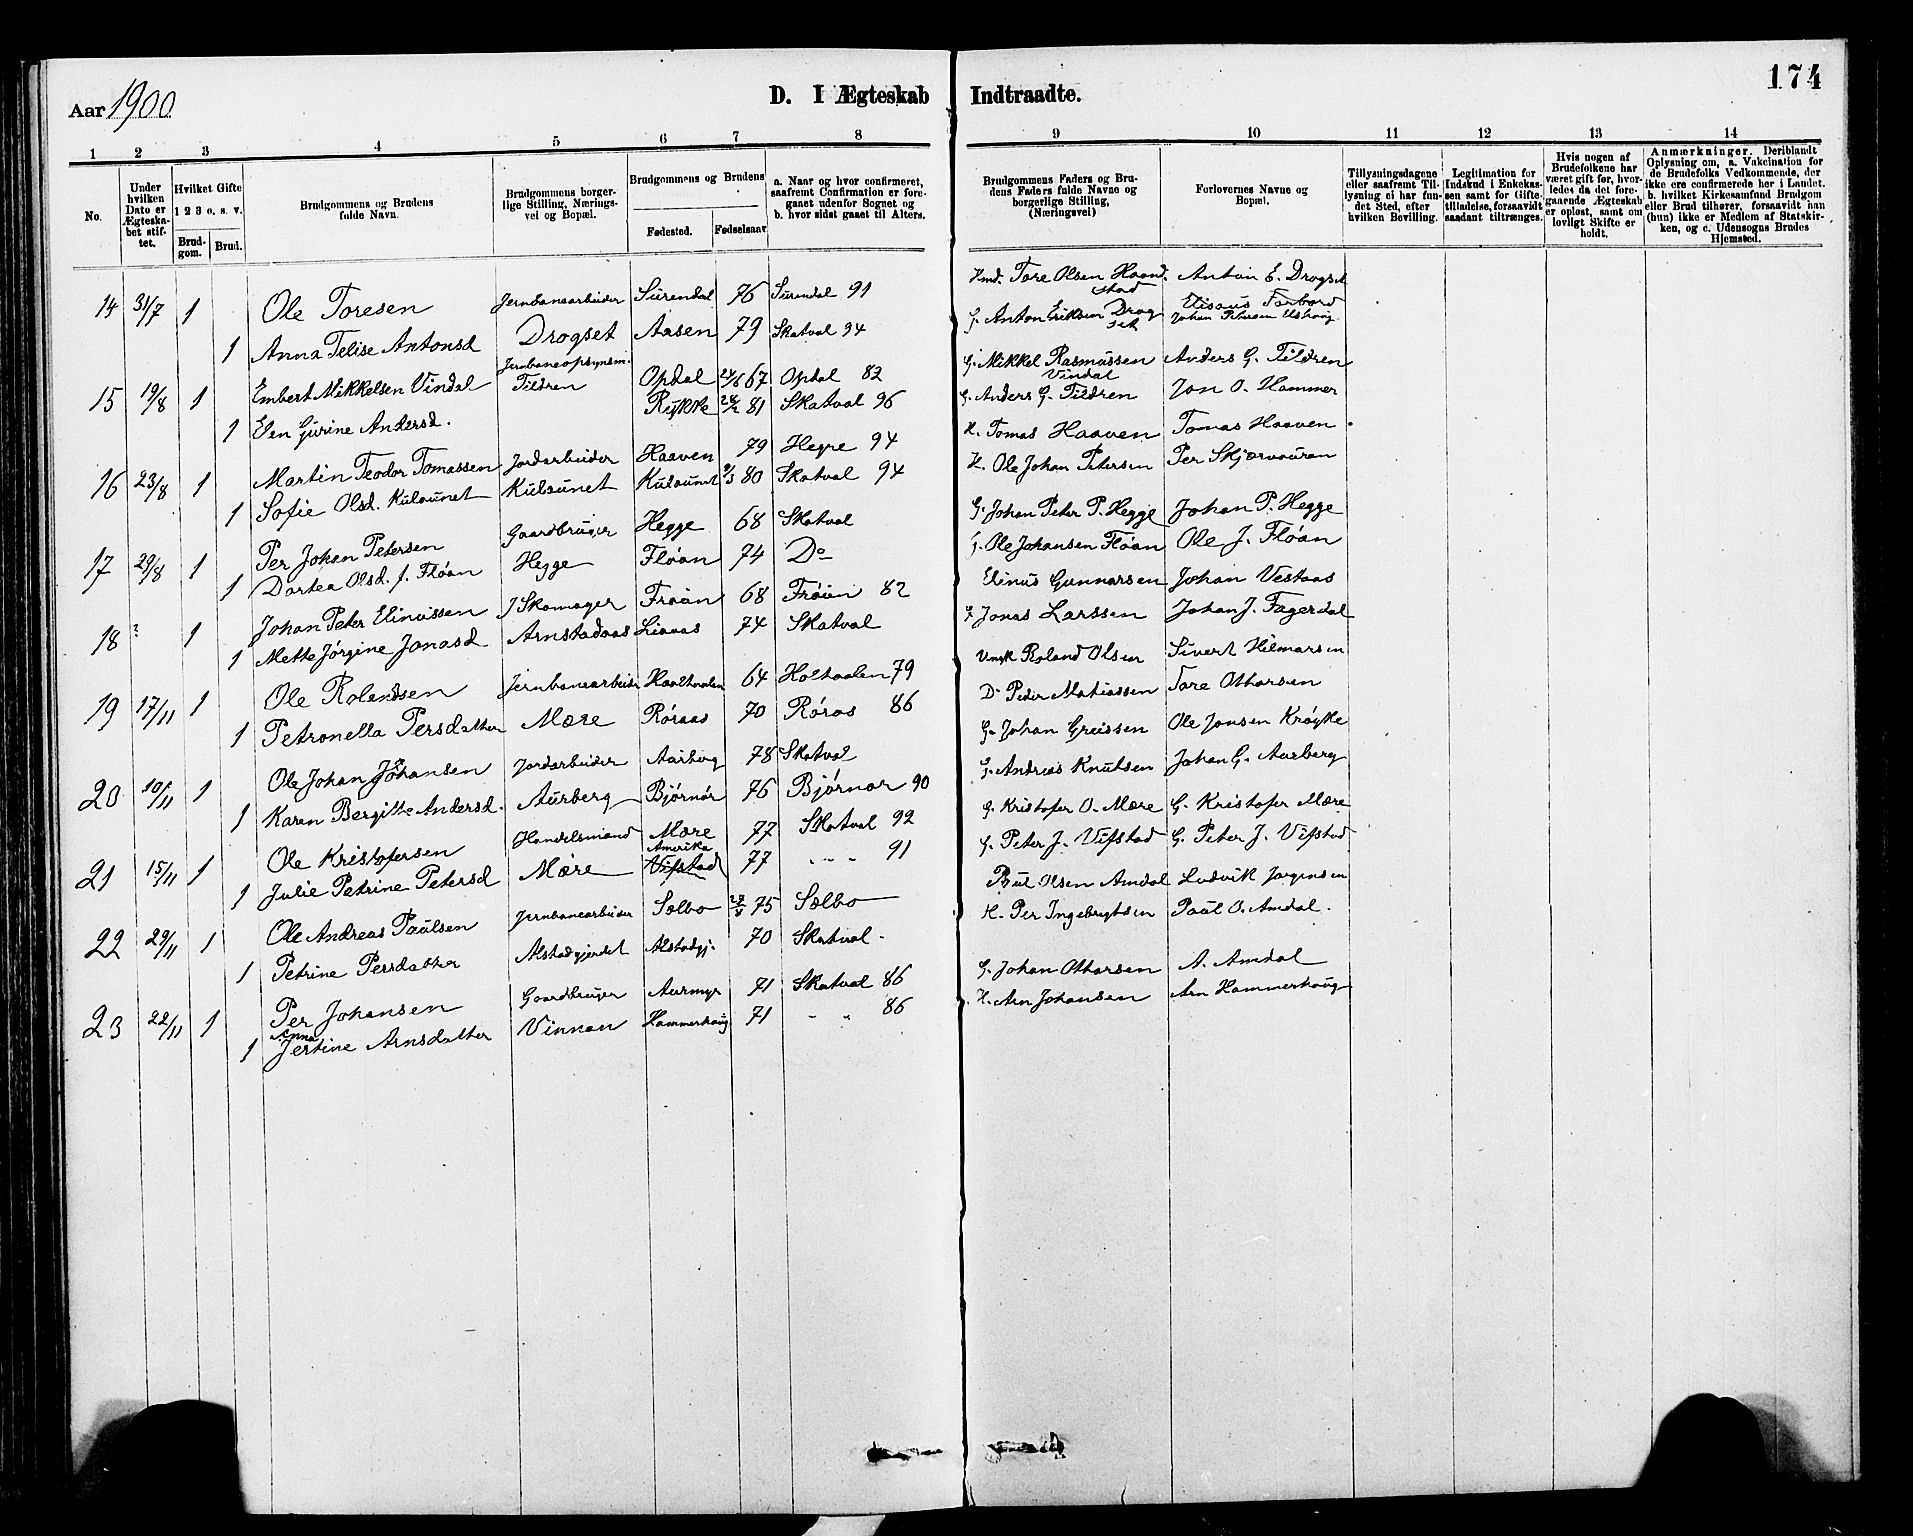 Aar 1900
D. I Ægteskab Indtraadte.
174
1 2 3 4 5 6 7 8 9 10 11 12 13 14
No.
Under hvilken Dato er Ægteskabet stiftet.
Hvilket Gifte 1 2 3 o. s. v.
Brudgom. Brud.
Brudgommens og Brudens fulde Navn.
Brudgommens borgerlige Stilling, Næringsvei og Bopæl.
Brudgommens og Brudens
Fødested. Fødselsaar
a. Naar og hvor confirmeret, saafremt Confirmation er foregaaet udenfor Sognet og b. hvor sidst gaaet til Alters.
Brudgommens Faders og Brudens Faders fulde Navne og borgerlige Stilling, (Næringsvei)
Forlovernes Navne og Bopæl.
Tillysningsdagene eller saafremt Tillysning ei har fundet Sted, efter hvilken Bevilling.
Legitimation for Indskud i Enkekassen samt for Giftetilladelse, forsaavidt saadant tiltrænges.
Hvis nogen af Brudefolkene har været gift før, hvorledes da det foregaaende Ægteskab er opløst, samt om lovligt Skifte er holdt.
Anmærkninger. Deriblandt Oplysning om, a. Vakcination for de Brudefolks Vedkommende, der ikke ere confirmerede her i Landet. b. hvilket Kirkesamfund Brudgom eller Brud tilhører, forsaavidt han (hun) ikke er Medlem af Statskirken, og c. Udensogns Brudes Hjemsted.
14 31/7 1 Ole Toresen Jernbanearbeider Surendal 76 Surendal 91 Hmd. Tore Olsen Haandstad Anton E. Drogset
1 Anna Telise Antonsd Drogset Aasen 79 Skatval 94 G. Anton Eriksen Drogset Elisæus Forbord Johan Petersen
15 19/8 1 Embert Mikkelsen Vindal Jernbaneopsynsm. Tildren Opdal 67 Opdal 82 G. Mikkel Rasmussen Vindal Anders G. Tildren
1 Elen Gurine Andersd. Rykke 81 Skatval 96 G. Anders G. Tildren Jon O. Hammer
16 23/8 1 Martin Teodor Tomassen Jordarbeider Haaven 79 Hegre 94 H. Tomas Haaven Tomas Haaven
1 Sofie Olsd. Kulsunet Kulsunet Kulsunet 9/3 80 Skatval 94 H. Ole Johan Petersen Per Skjærvouran
17 29/8 1 Per Johan Petersen Gaardbruger Hegge 68 Skatval G. Johan Peter P. Hegge Johan P. Hegge
1 Dortea Olsd. f. Fløan Hegge Fløan 74 Do G. Ole Johansen Fløan Ole J. Fløan
18 ? 1 Johan Peter Elinussen Skomager Frøien 68 Frøien 82 Elinus Gunnarsen Johan Vestaas
1 Mette Jørgine Jonasd Arnstadaas Liavas 74 Skatval Jonas Larssen Johan J. Fagerdal
19 17/11 1 Ole Rolandsen Jernbanearbeider Haaltvalen 64 Holtvalen 79 Roland Olsen Sivert Hilmarsen
1 Petronella Persdatter Mære Røraas 70 Røros 86 Do Peder Matiassen Tore Ottarsen
20 10/11 1 Ole Johan Johansen Jordarbeider Aarberg 78 Skatval G. Johan Greissen Ole Jonsen Krøyke
1 Karen Bergitte Andersd. Aurberg Bjørnør 76 Bjørnør 90 G. Andreas Knutsen Johan G. Aurberg
21 15/11 1 Ole Kristofersen Handelsmand Mære 77 Skatval 92 G. Kristofer O. Mære G. Kristofer Mære
1 Julie Petrine Petersd Mære Amerika Vifstad 77 " " " 91 G. Peter J. Vifstad G. Peter J. Vifstad
22 29/11 1 Ole Andreas Paulsen Jernbanearbeider Sælbo 75 Sælbo Paul Olsen Amdal Ludvik Jørgensen
1 Petrine Persdatter Alstadgjerdet Alstadgj. 70 Skatval H. Per Ingebrigtsen Paul O. Amdal.
23 22/11 1 Per Johansen Gaardbruger Aurmyr 71 Skatval 86 G. Johan Ottarsen A. Amdal
1 Anna Jertine Arnsdatter Vinnan Hammerhaug 71 " " 86 H. Arn Johansen Arn Hammerhaug